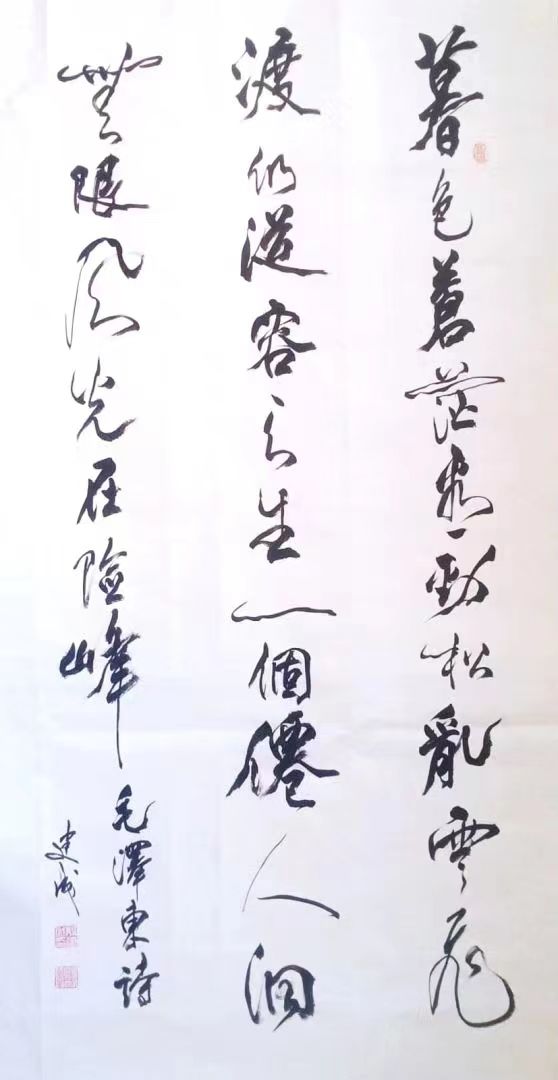 暮色蒼茫看勁松亂雲飛
渡仍從容天生一個僊人洞
無限風光在險峰
毛澤東詩